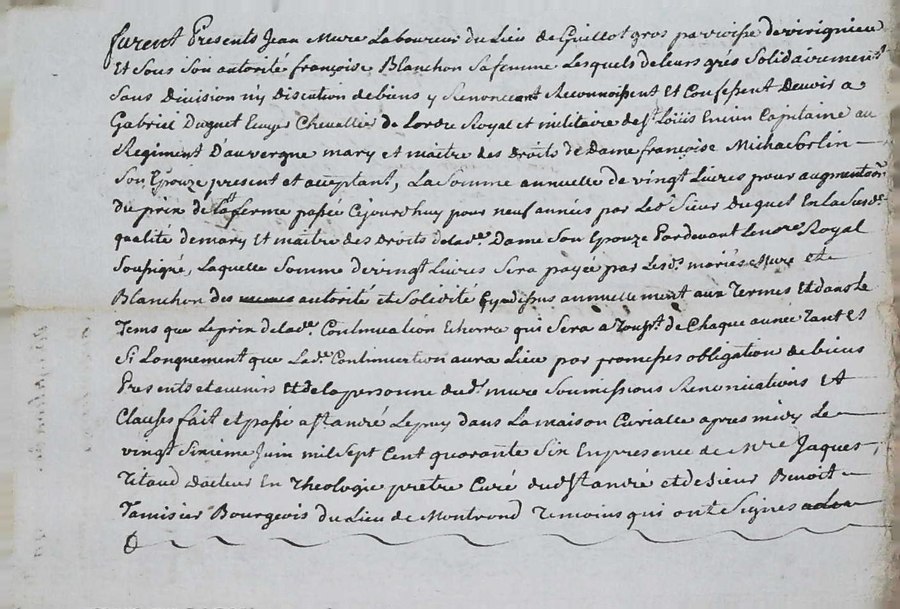 furent Presents Jean Mure Laboureur du Lieu de Guillot gros parroisse de virignieu
Et sous son autorité françoise Blanchon sa femme Lesquels de leurs grés Solidairement
sans Division n'y Discution de biens y Renonceant Reconnoissent Et Confessent Devoir a
Gabriel Duguet Ecuyer Chevallier de Lordre Royal et militaire de st Loüis Encien Capitaine au
Regiment D'auvergne mary et maitre des Droits de Dame françoise Michasorlin
Son Epouze present et acceptant, La Somme annuelle de vingt Livres pour augmentaon
du prix de la ferme passée Cejourdhuy pour neuf années par Led. Sieur Duguet En La Susde
qualité de mary Et maitre des Droits de lade Dame Son Epouze Pardevant Le nore Royal
Soussigné, Laquelle Somme de vingt Livres Sera payée par Lesds mariés Mure et
Blanchon des autorité et Solidite Cy dessus annuellement aux Termes Et dans Le
Tems que Le prix de lade Continuation Echerra qui Sera a de Chaque année Tant Et
Si Longuement que Lade Continuation aura Lieu par promesses obligation de biens
Presents et avenirs Et de la personne dudt mure Soumissions Renonciations Et
Clauses fait et passé a st andré Le puy dans La maison Curialle apres midy Le
vingt Sixieme Juin mil Sept Cent quarante Six En presence de Mre Jaques
Titaud docteur En Theologie pretre Curé dud st andré et de Sieur Benoit
Tamisier Bourgeois du Lieu de Montrond Temoins qui ont Signés